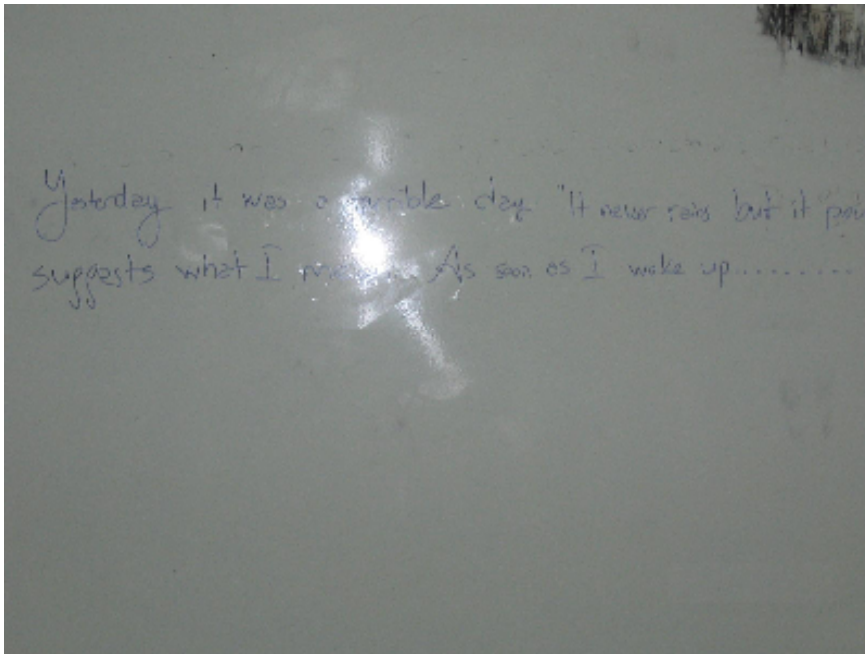 Yesterday it was a terrible day "It never rains but it
suggests what I As soon as I woke up.........